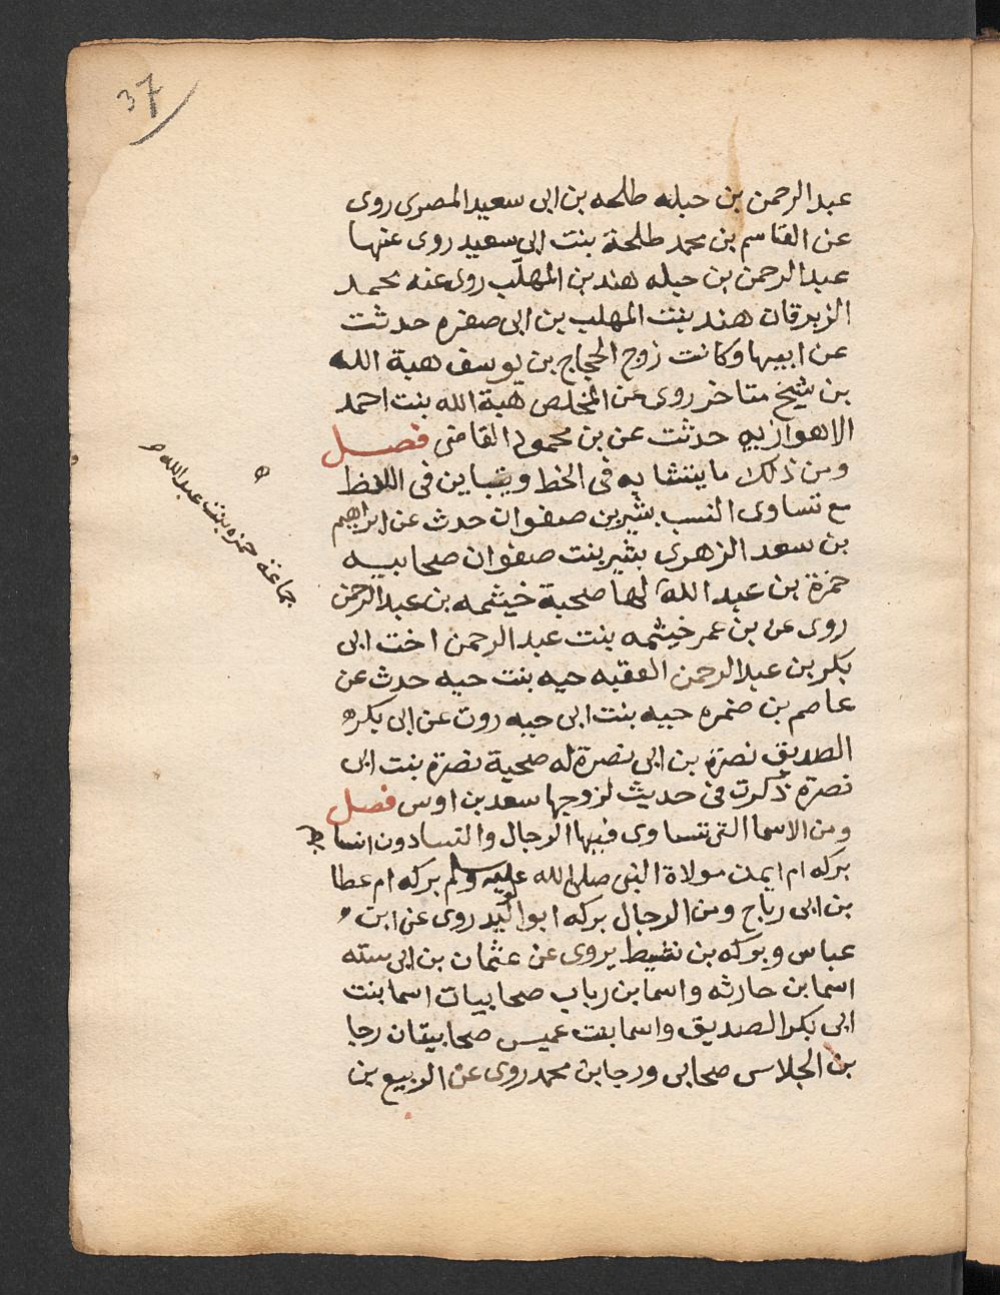 37
عبد الرحمن بن حبله طلحه بن ابى سعيد المصرى روى
عن القاسم بن محمد طلحة بنت ابى سعيد روى عنها
عبد الرحمن بن حبله هند بن المهلّب روى عنه محمد
الزبرقان هند بنت المهلب بن ابى صفره حدثت
عن ابيها وكانت زوج الحجاج بن يوسف هبة الله
بن شيخ متاخر روى عن المخلص هبة الله بنت احمد
الاهوازيه حدثت عن بن محمود القاضى فصل
ومن ذلك ما يتشابه فى الخط ويتباين فى اللفظ
مع تساوى النسب بشير بن صفوان حدث عن ابراهيم
بن سعد الزهرى بشير بنت صفوان صحابيه
حمزة بن عبد الله لها صحبة خيثمه بن عبد الرحمن
روى عن بن عمر خيثمه بنت عبد الرحمن اخت ابى
بكر بن عبد الرحمن الفقيه حيه بنت حيه حدث عن
عاصم بن ضمره حبيه بنت ابى حيه روت عن ابى بكر
الصديق نصرة بن ابى نصرة له صحبة نضرة بنت ابى
نصرة ذكرت فى حديث لزوجها سعد بن اوس فصل
ومن الاسما التى تتساوى فيها الرجال والنسا دون انسا
بركه ام ايمن مولاة النبى صلى الله عليه وسلم بركه ام عطا
بن ابى رباح ومن الرجال بركه ابو الوليد روى عن ابن
عباس وبركه بن نشيط يروى عن عثمان بن ابى سته
اسما بن حارثه واسما بن رباب صحابيات اسما بنت
ابى بكر الصديق واسما بنت عميس صحابيتان رجا
بن الجلاس صحابى ورجا بن محمد روى عن الربيع بن
جماعة حمزه بنت عبد الله